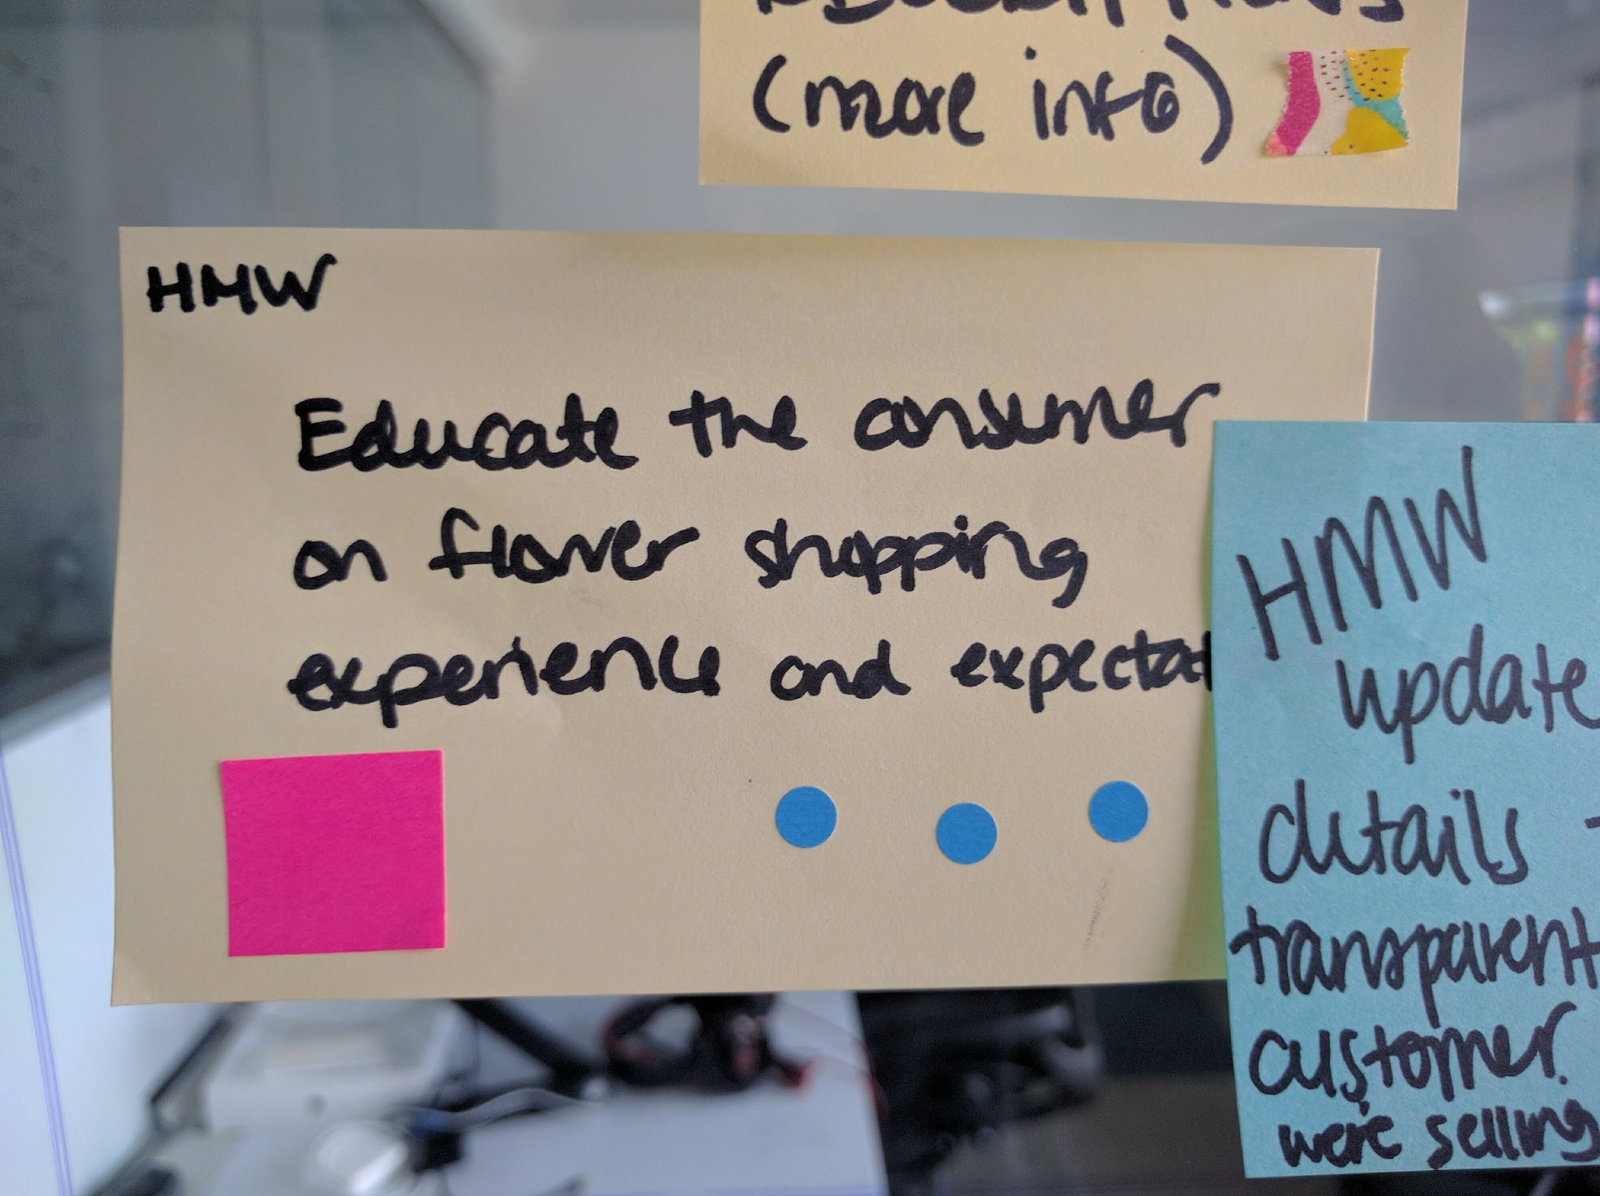 (more info)
HMW
Educate the consumer
on flower shopping
experience and expectat
HMW
update
details
transparent
customer.
we're selling